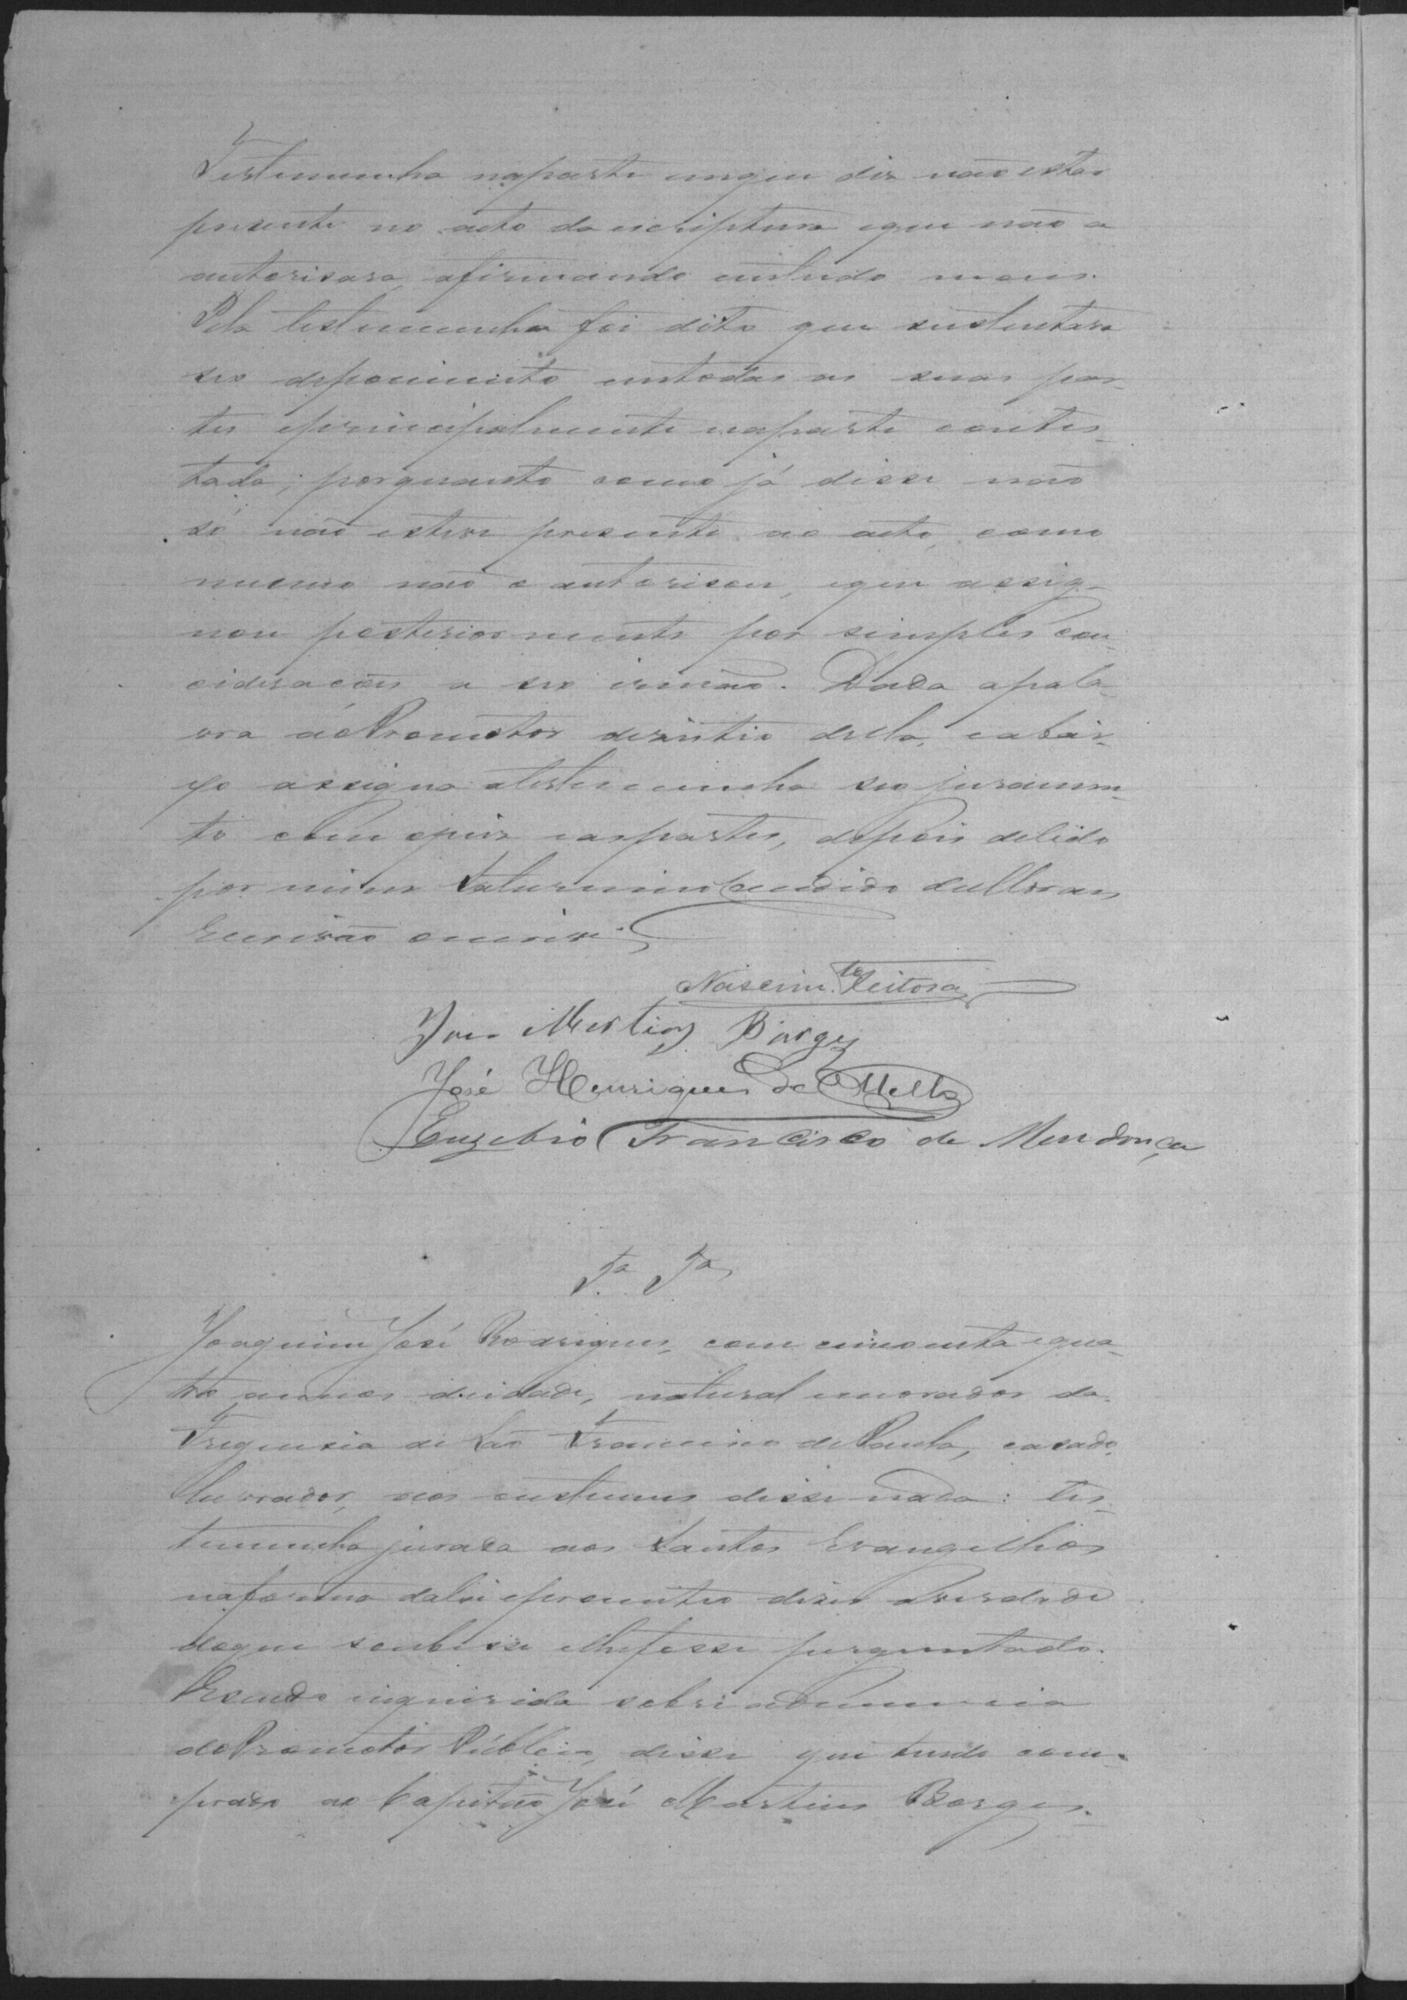 Testemunha naparte emque diz não estar
presente no acto da escriptura eque não a
autorisara, afirmando emtudo mais.
Pela testemunha foi dito que sustentava
seo depoimento emtodas as suas par-
tes eprincipalmente naparte contes-
tada; porquanto como já disse não
só não esteve presente ao acto, como
mesmo não o autorisou, eque assig-
nou posteriormente por simples con-
cideracões a seo irmão. Dada apala-
vra aóPromotor desistio della, eabai-
xo assigna atestemunha seo juramen-
to com ojuiz easpartes, depois delido
por mim Saturnino Candido deMoraes
Escrivão oescrivi.
Nascim.to Feitosa
José Martins Borges
José Henriques de Mello
Euzebio Francisco de Mendonça
Ta. Ta.
Joaquim José Rodrigues, com cincoenta equa-
tro annos deidade, natural emorador da
Freguesia de São Francisco dePaula, casado,
lavrador, aos custumes disse nada: tes-
temunha jurada aos Santos Evangelhos
naforma dalei eprometeo dizer averdade
doque soubesse elhefosse perguntado.
Esendo inquirida sobre adenuncia
doPromotor Publico, disse que tendo com-
prado ao Capitão José Martins Borges